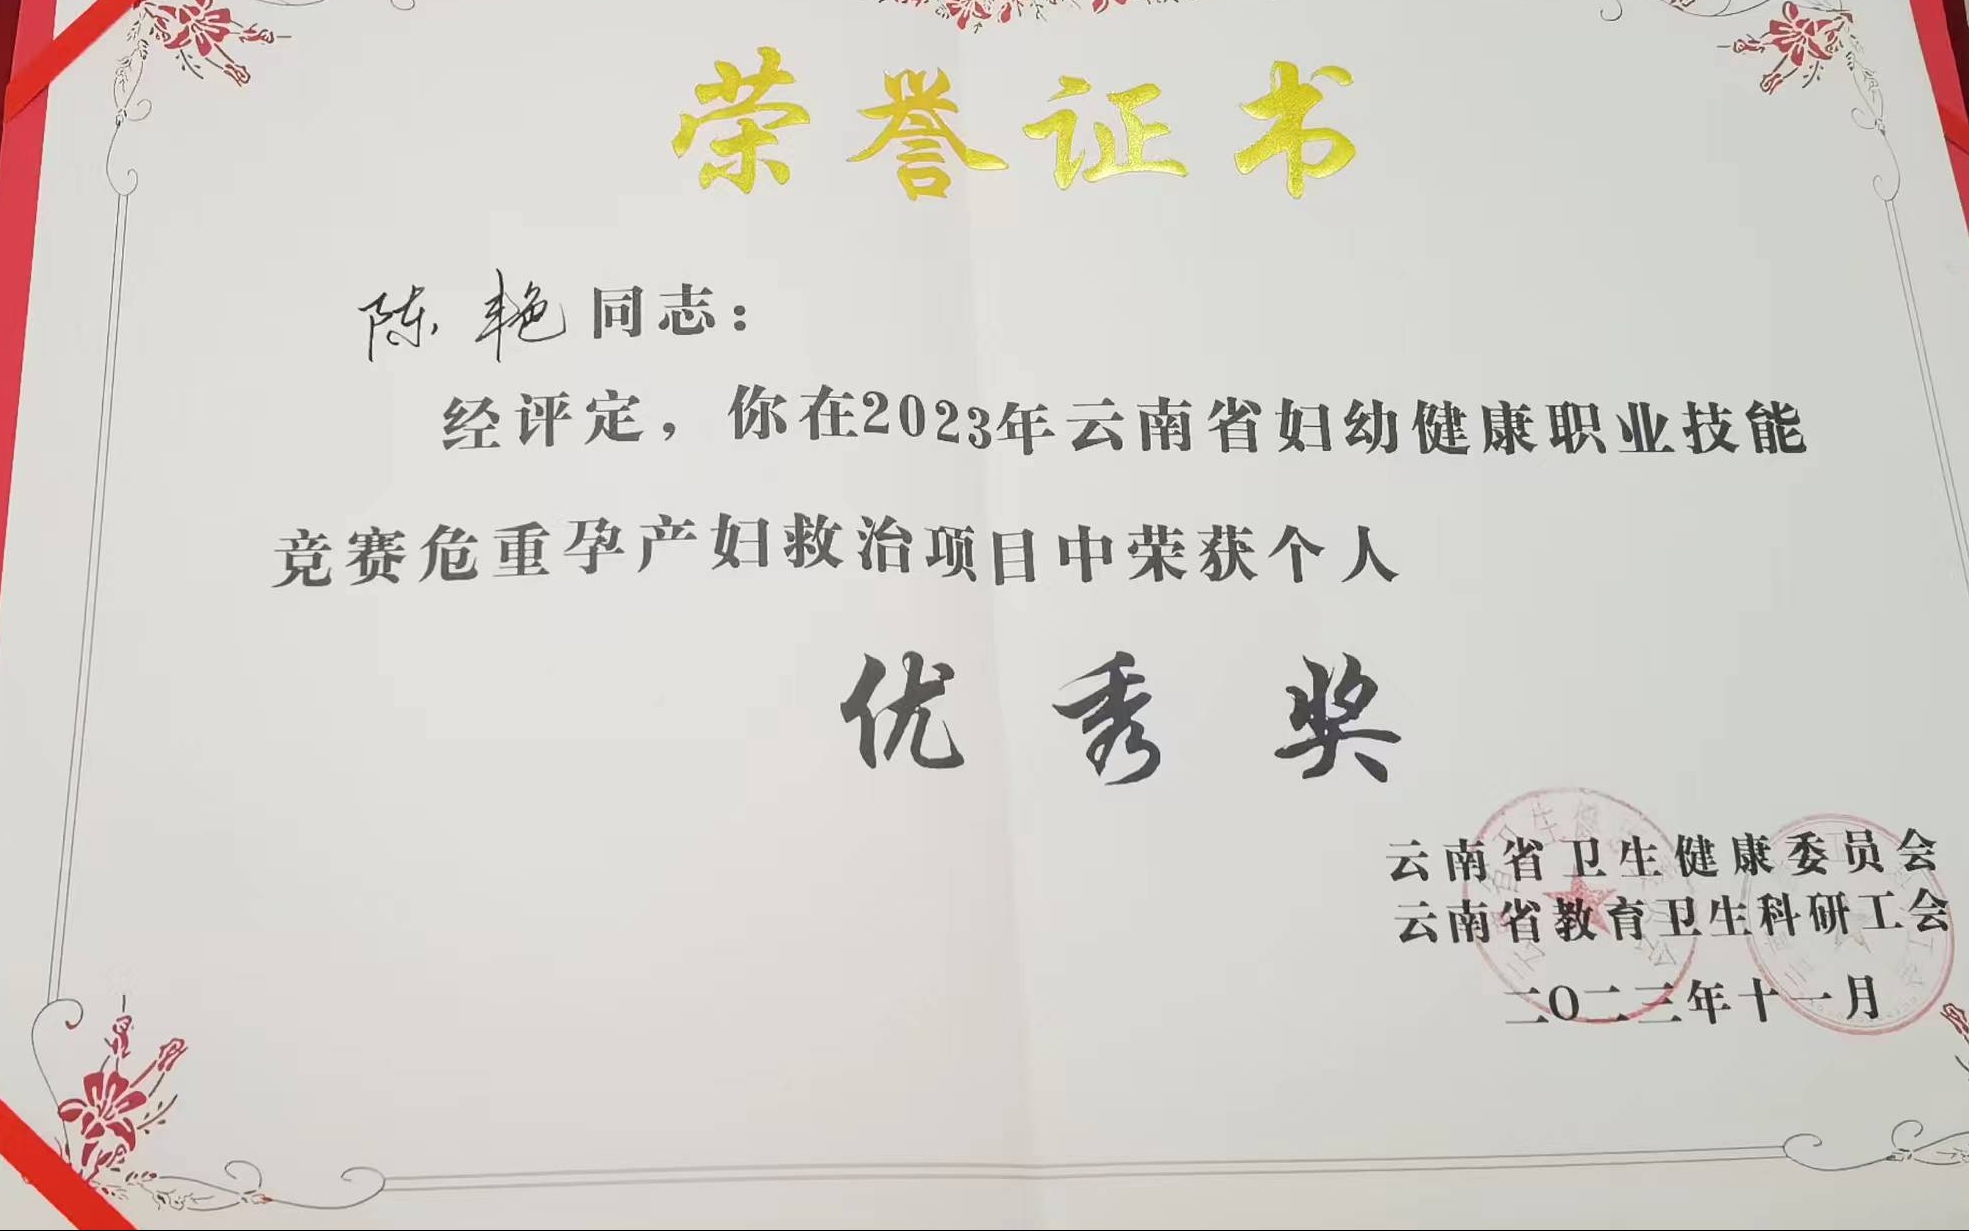 荣誉证书
陈艳同志：
经评定，你在2023年云南省妇幼健康职业技能
竞赛危重孕产妇救治项目中荣获个人
优秀奖
云南省卫生健康委员会
云南省教育卫生科研工会
二〇二三年十一月